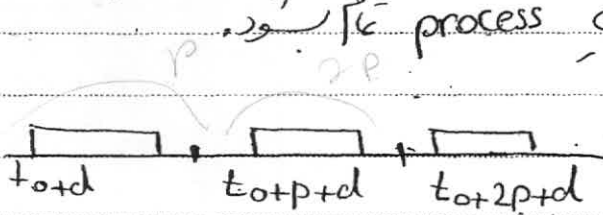 process تمام بشود.
P 2P
t0+d t0+p+d t0+2p+d